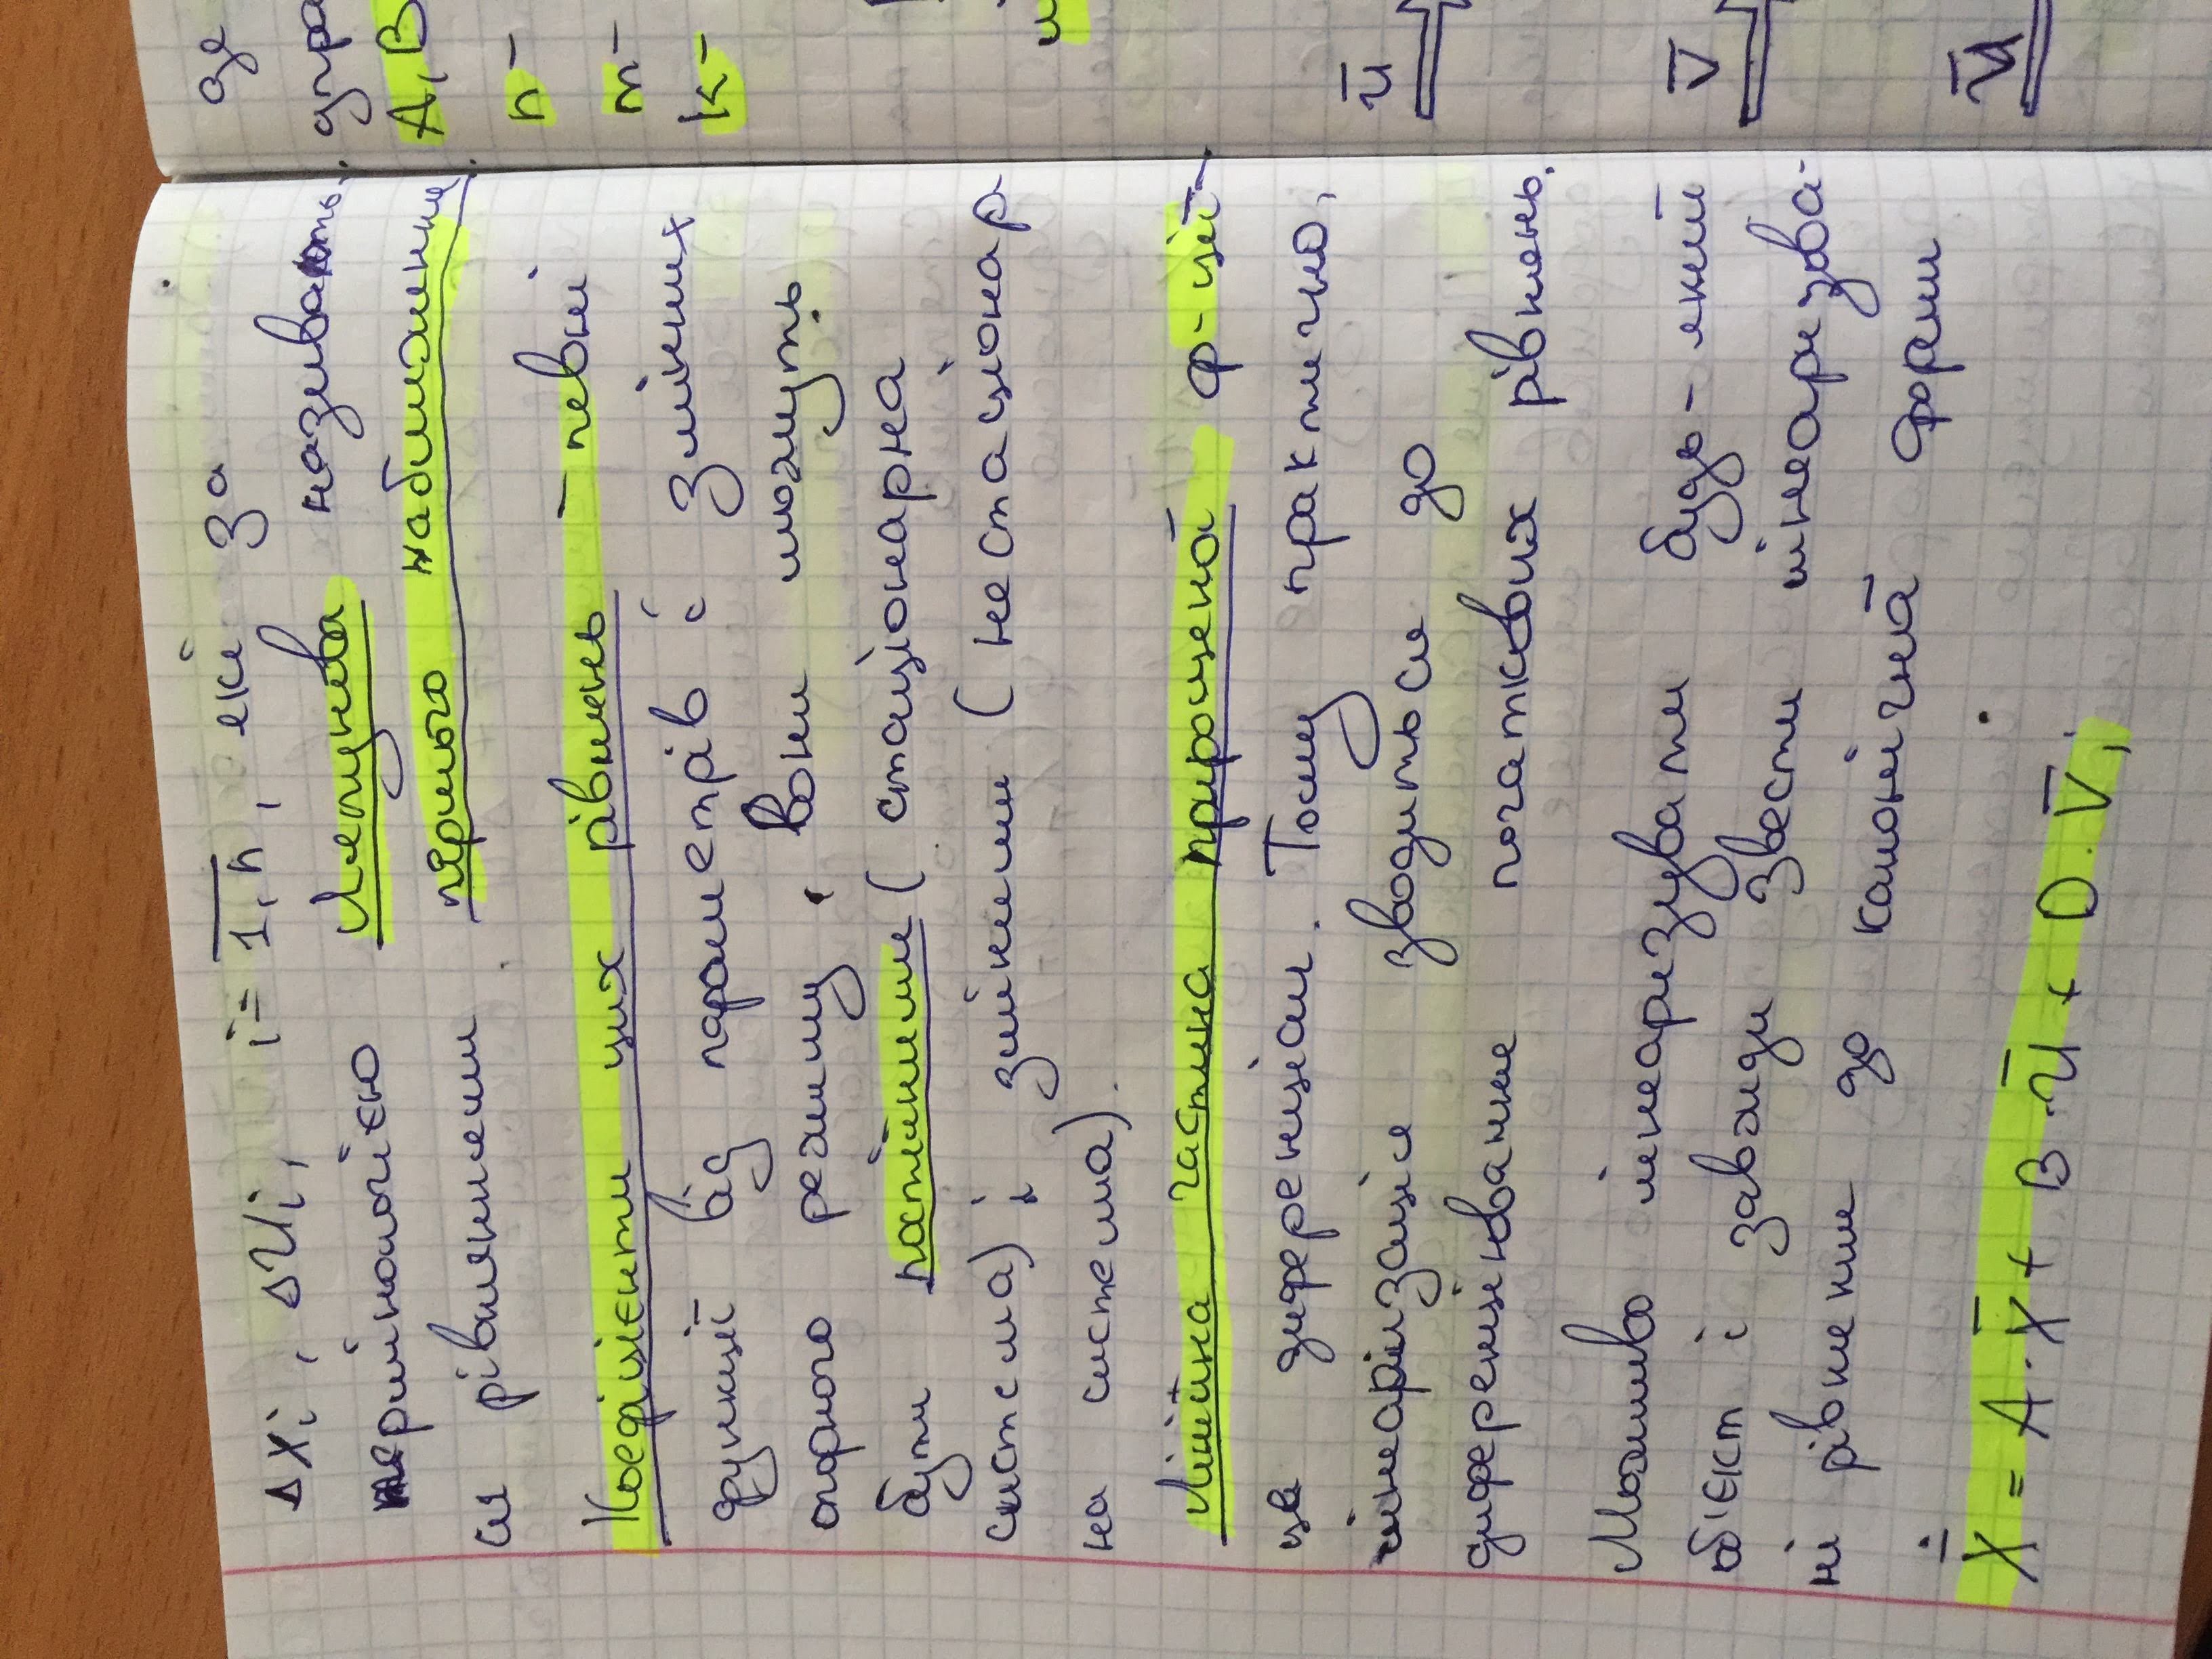 Δxi, ΔUi, i = 1,n, які за
термінологією Ляпунова називають-
ся рівняннями першого наближення.
Коефіцієнти цих рівнянь - певні
функції від параметрів і змінних
опорного режиму, вони можуть
бути постійними (стаціонарна
система) і змінними (нестаціонар-
на система).
Лінійна частина прирощеної ф-ції-
це диференціал. Тому практично,
лінеарізація зводиться до
диференціювання початкових рівнянь.
Можливо лінеаризувати будь-який
об'єкт і завжди звести лінеаризова-
ні рівняння до канонічної форми
Ẋ̄ = A·X̄ + B·Ū + D·V̄;
де
A, B
n -
m -
k -
Ū
V̄
Ū